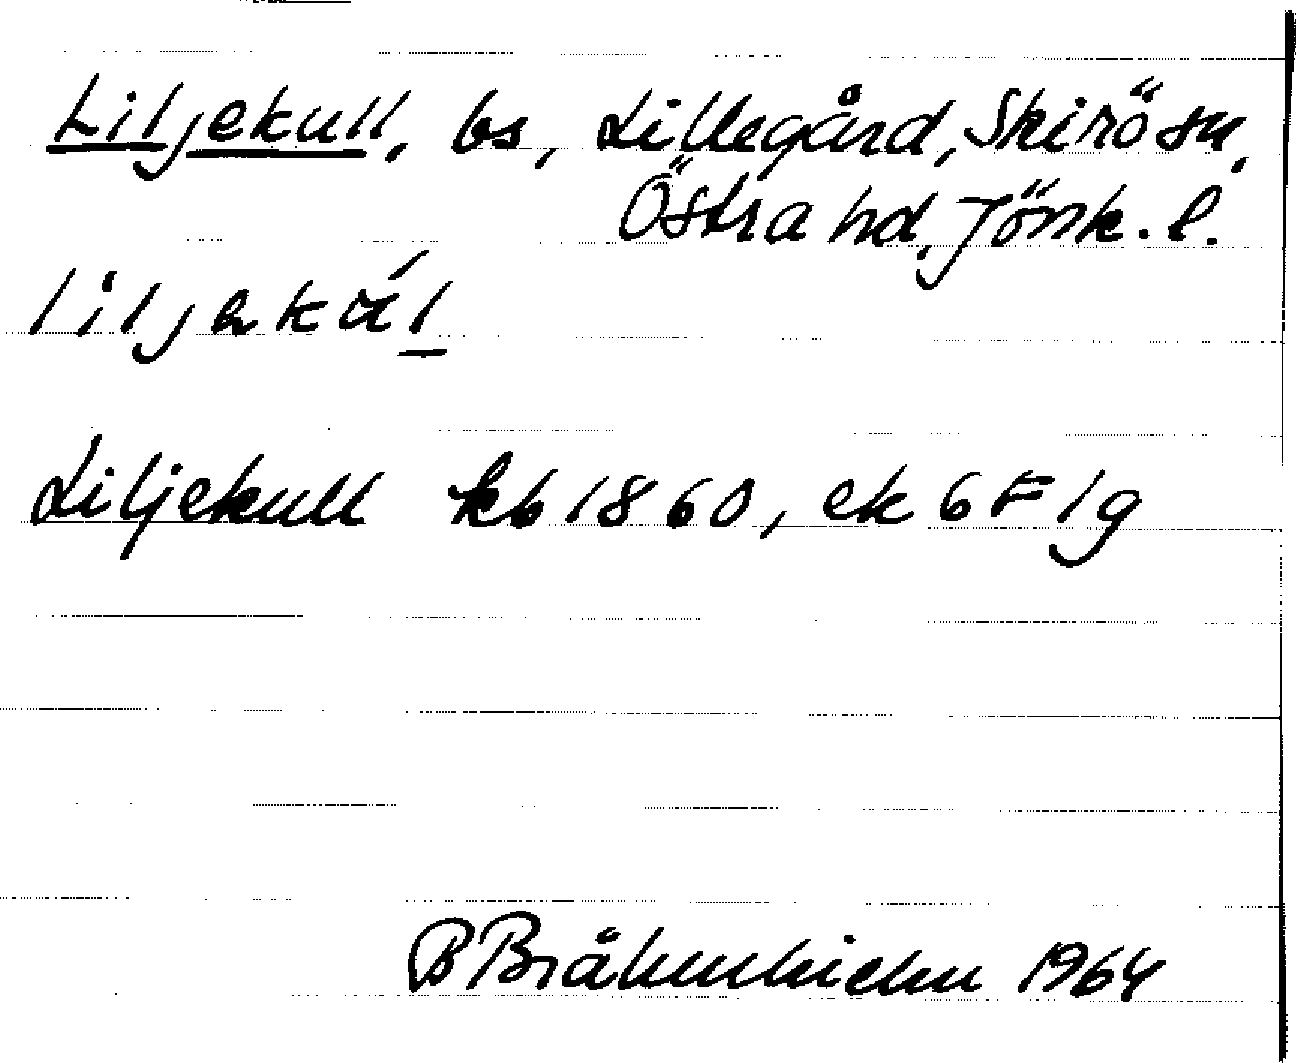 Liljekull, bs, Lillegård, Skirö sn,
Östra hd, Jönk. l.
liljekúl
Liljekull kb 1860, ek 6F1g
B Bråhenhielm 1964